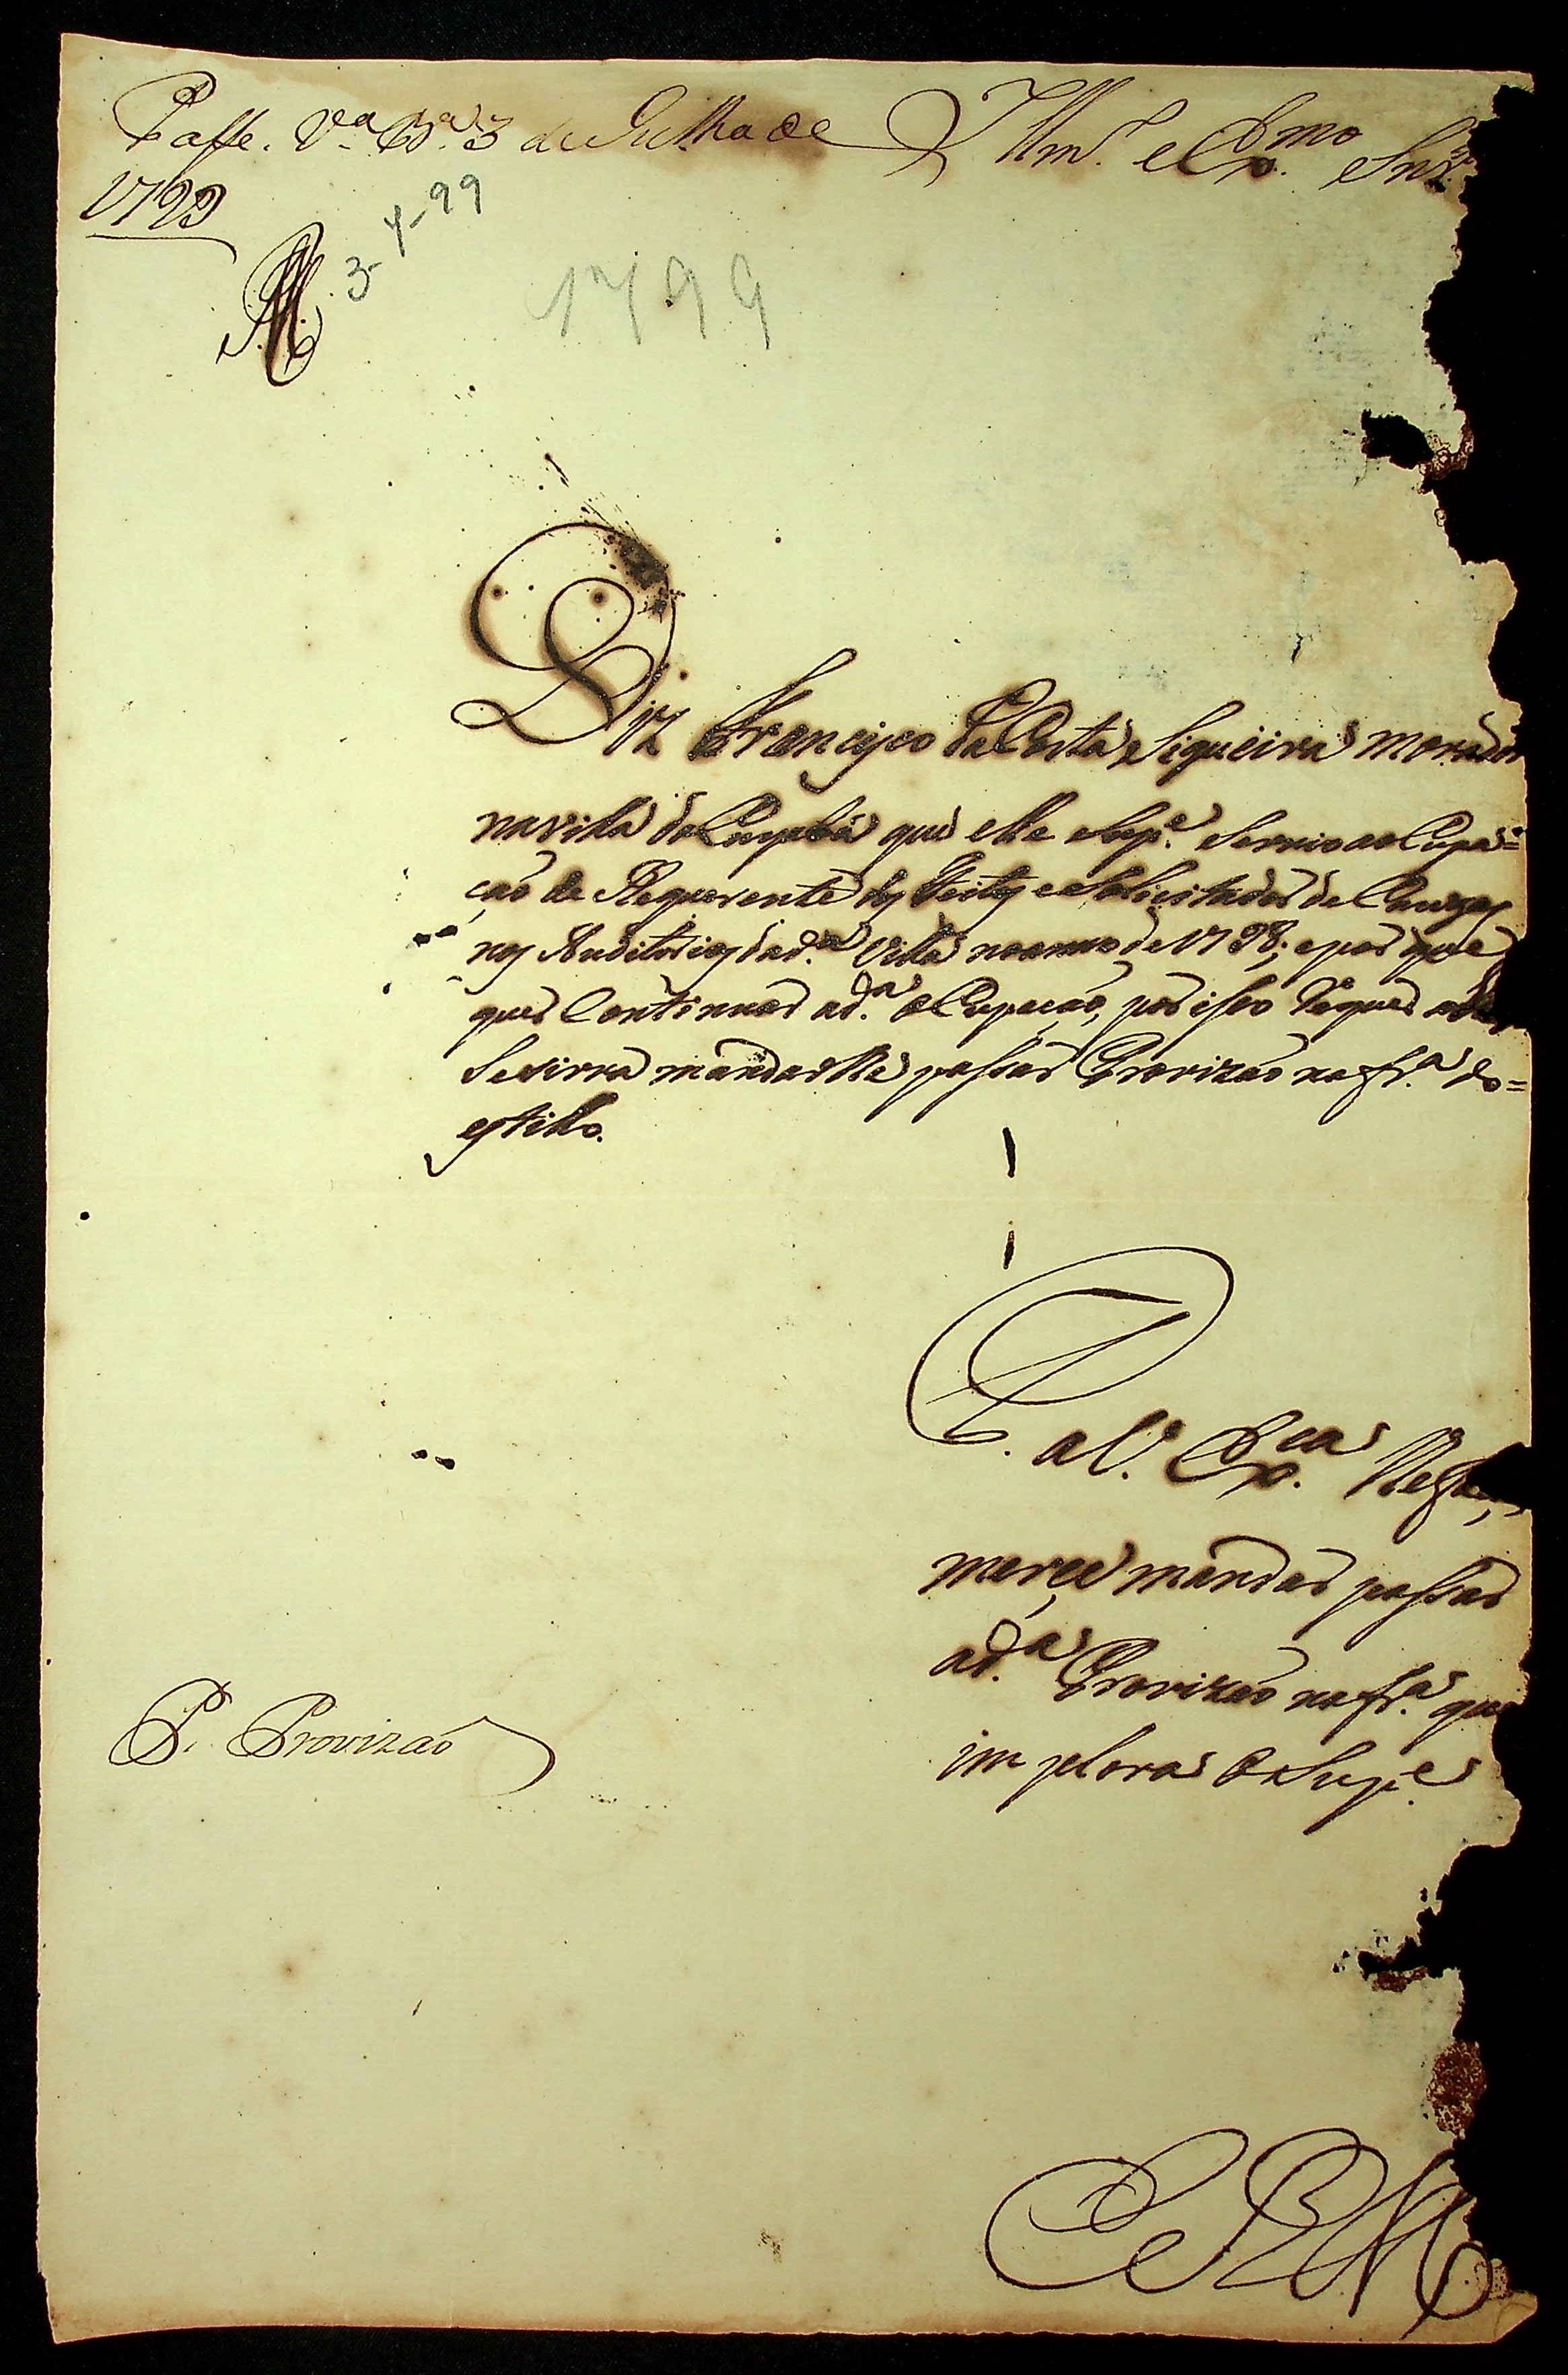 Passe. V.ª B.ª 3 de Julho de
1799
3-7-99
1799
Illm.º e Exmo Snr.
Diz Francisco da Costa Siqueira morador
na villa do Cuyabá que elle Sup.e servio a occupa=
ção de Requerente dos Feitos e Solicitador de Cauzas
nos Auditorios da d.ª Villa no anno de 1798; e por que
quer continuar a d.ª occupação, por isso requer a
se sirva mandar lhe passar Provizão na fr.ª do=
estillo.
P. a V. Ex.cia
merce mandar passar
a d.ª Provizão na fr.ª que
implora o Sup.e
P. Provizão
E R M